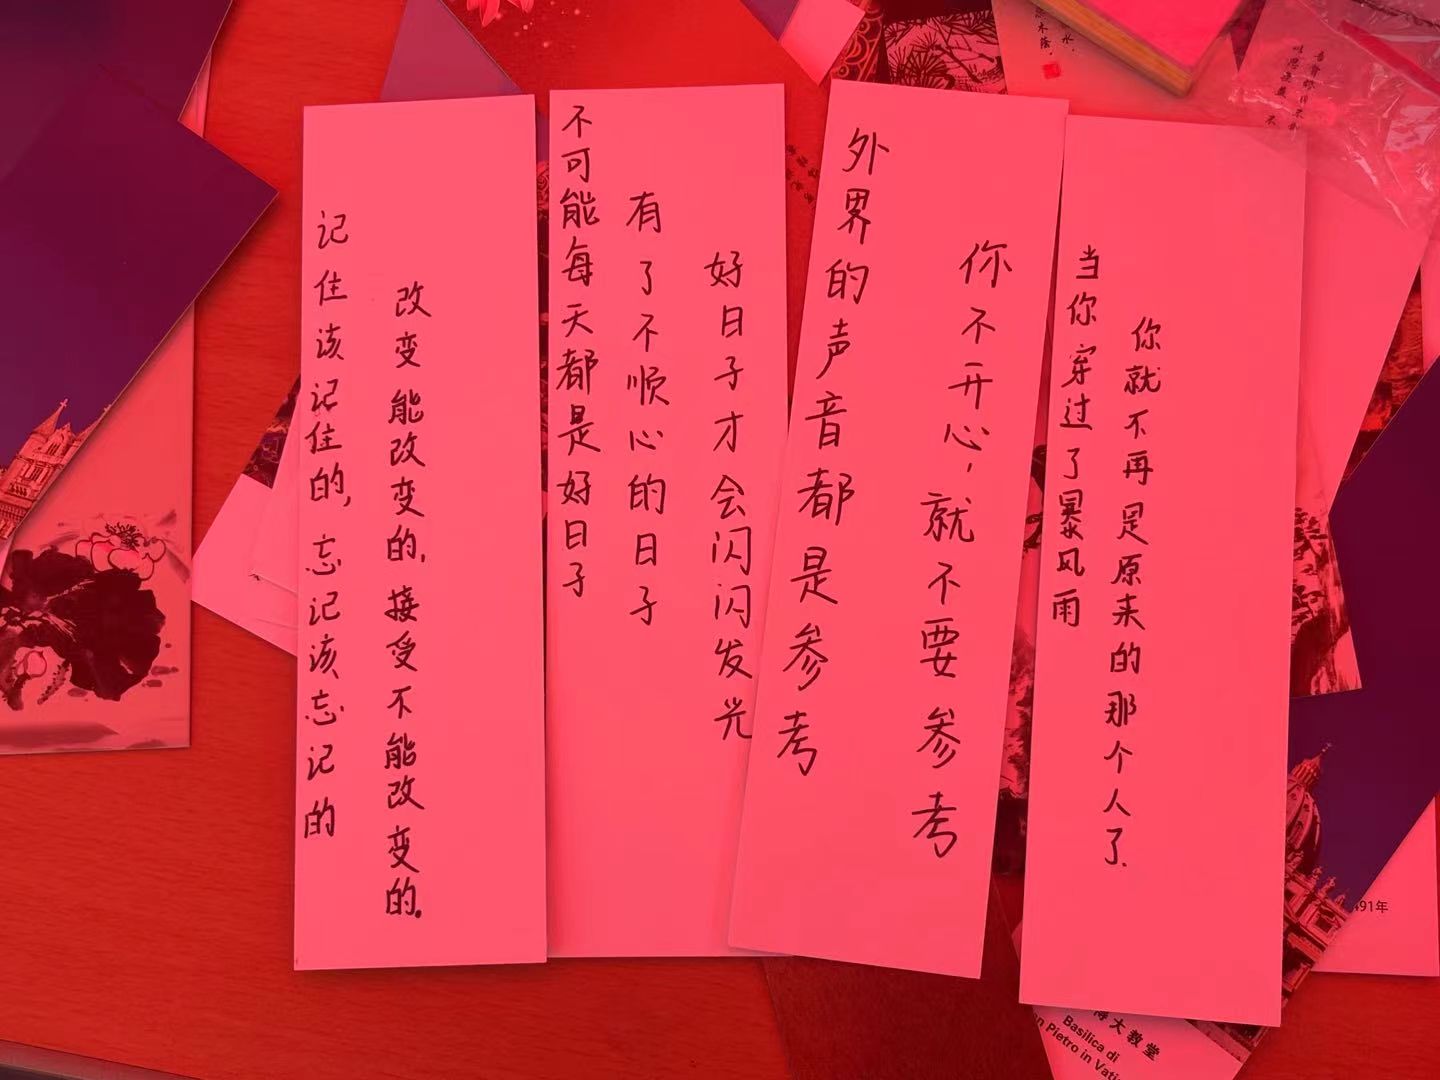 记住该记住的,忘记该忘记的
改变能改变的,接受不能改变的.
不可能每天都是好日子
有了不顺心的日子
好日子才会闪闪发光
外界的声音都是参考
你不开心,就不要参考
当你穿过了暴风雨
你就不再是原来的那个人了.
水,
木蔭.
491年
博大教堂
Basilica di
n Pietro in Vati